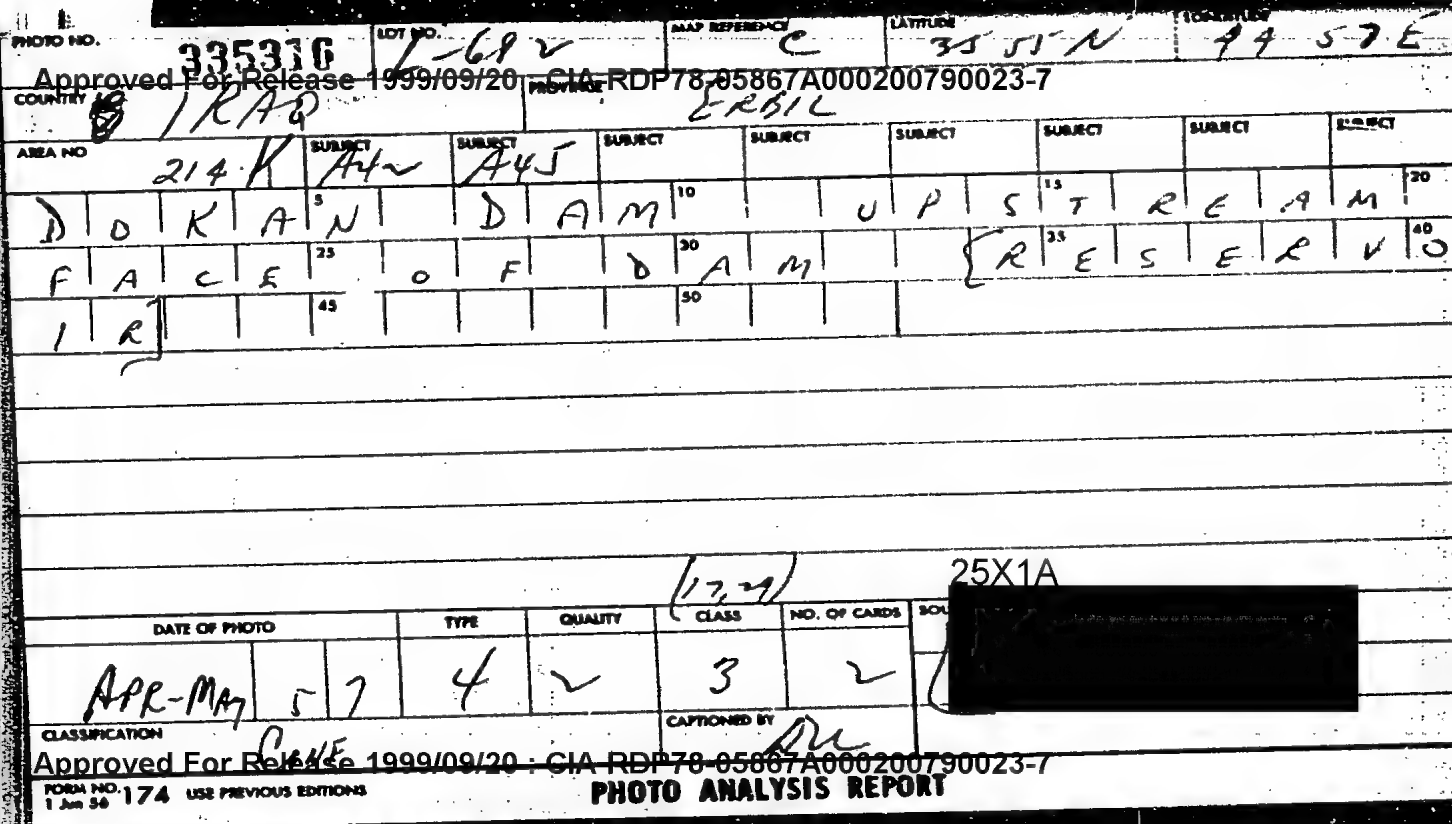 PHOTO NO. 335316 LOT NO. L-692 MAP REFERENCE C LATITUDE 35 55 N LONGITUDE 44 57 E
Approved For Release 1999/09/20 : CIA-RDP78-05867A000200790023-7
COUNTRY IRAQ PROVINCE ERBIL
AREA NO 214.K SUBJECT A42 SUBJECT A45 SUBJECT SUBJECT SUBJECT SUBJECT SUBJECT SUBJECT
5 10 15 20
DOKAN DAM UPSTREAM
25 30 35 40
FACE OF DAM (RESERVO
45 50
IR)
(17, 29)
25X1A
DATE OF PHOTO TYPE QUALITY CLASS NO. OF CARDS
APR-MAY 57 4 2 3 2
CLASSIFICATION CAPTIONED BY
Approved For Release 1999/09/20 : CIA-RDP78-05867A000200790023-7
FORM NO. 174 USE PREVIOUS EDITIONS PHOTO ANALYSIS REPORT
1 Jun 56